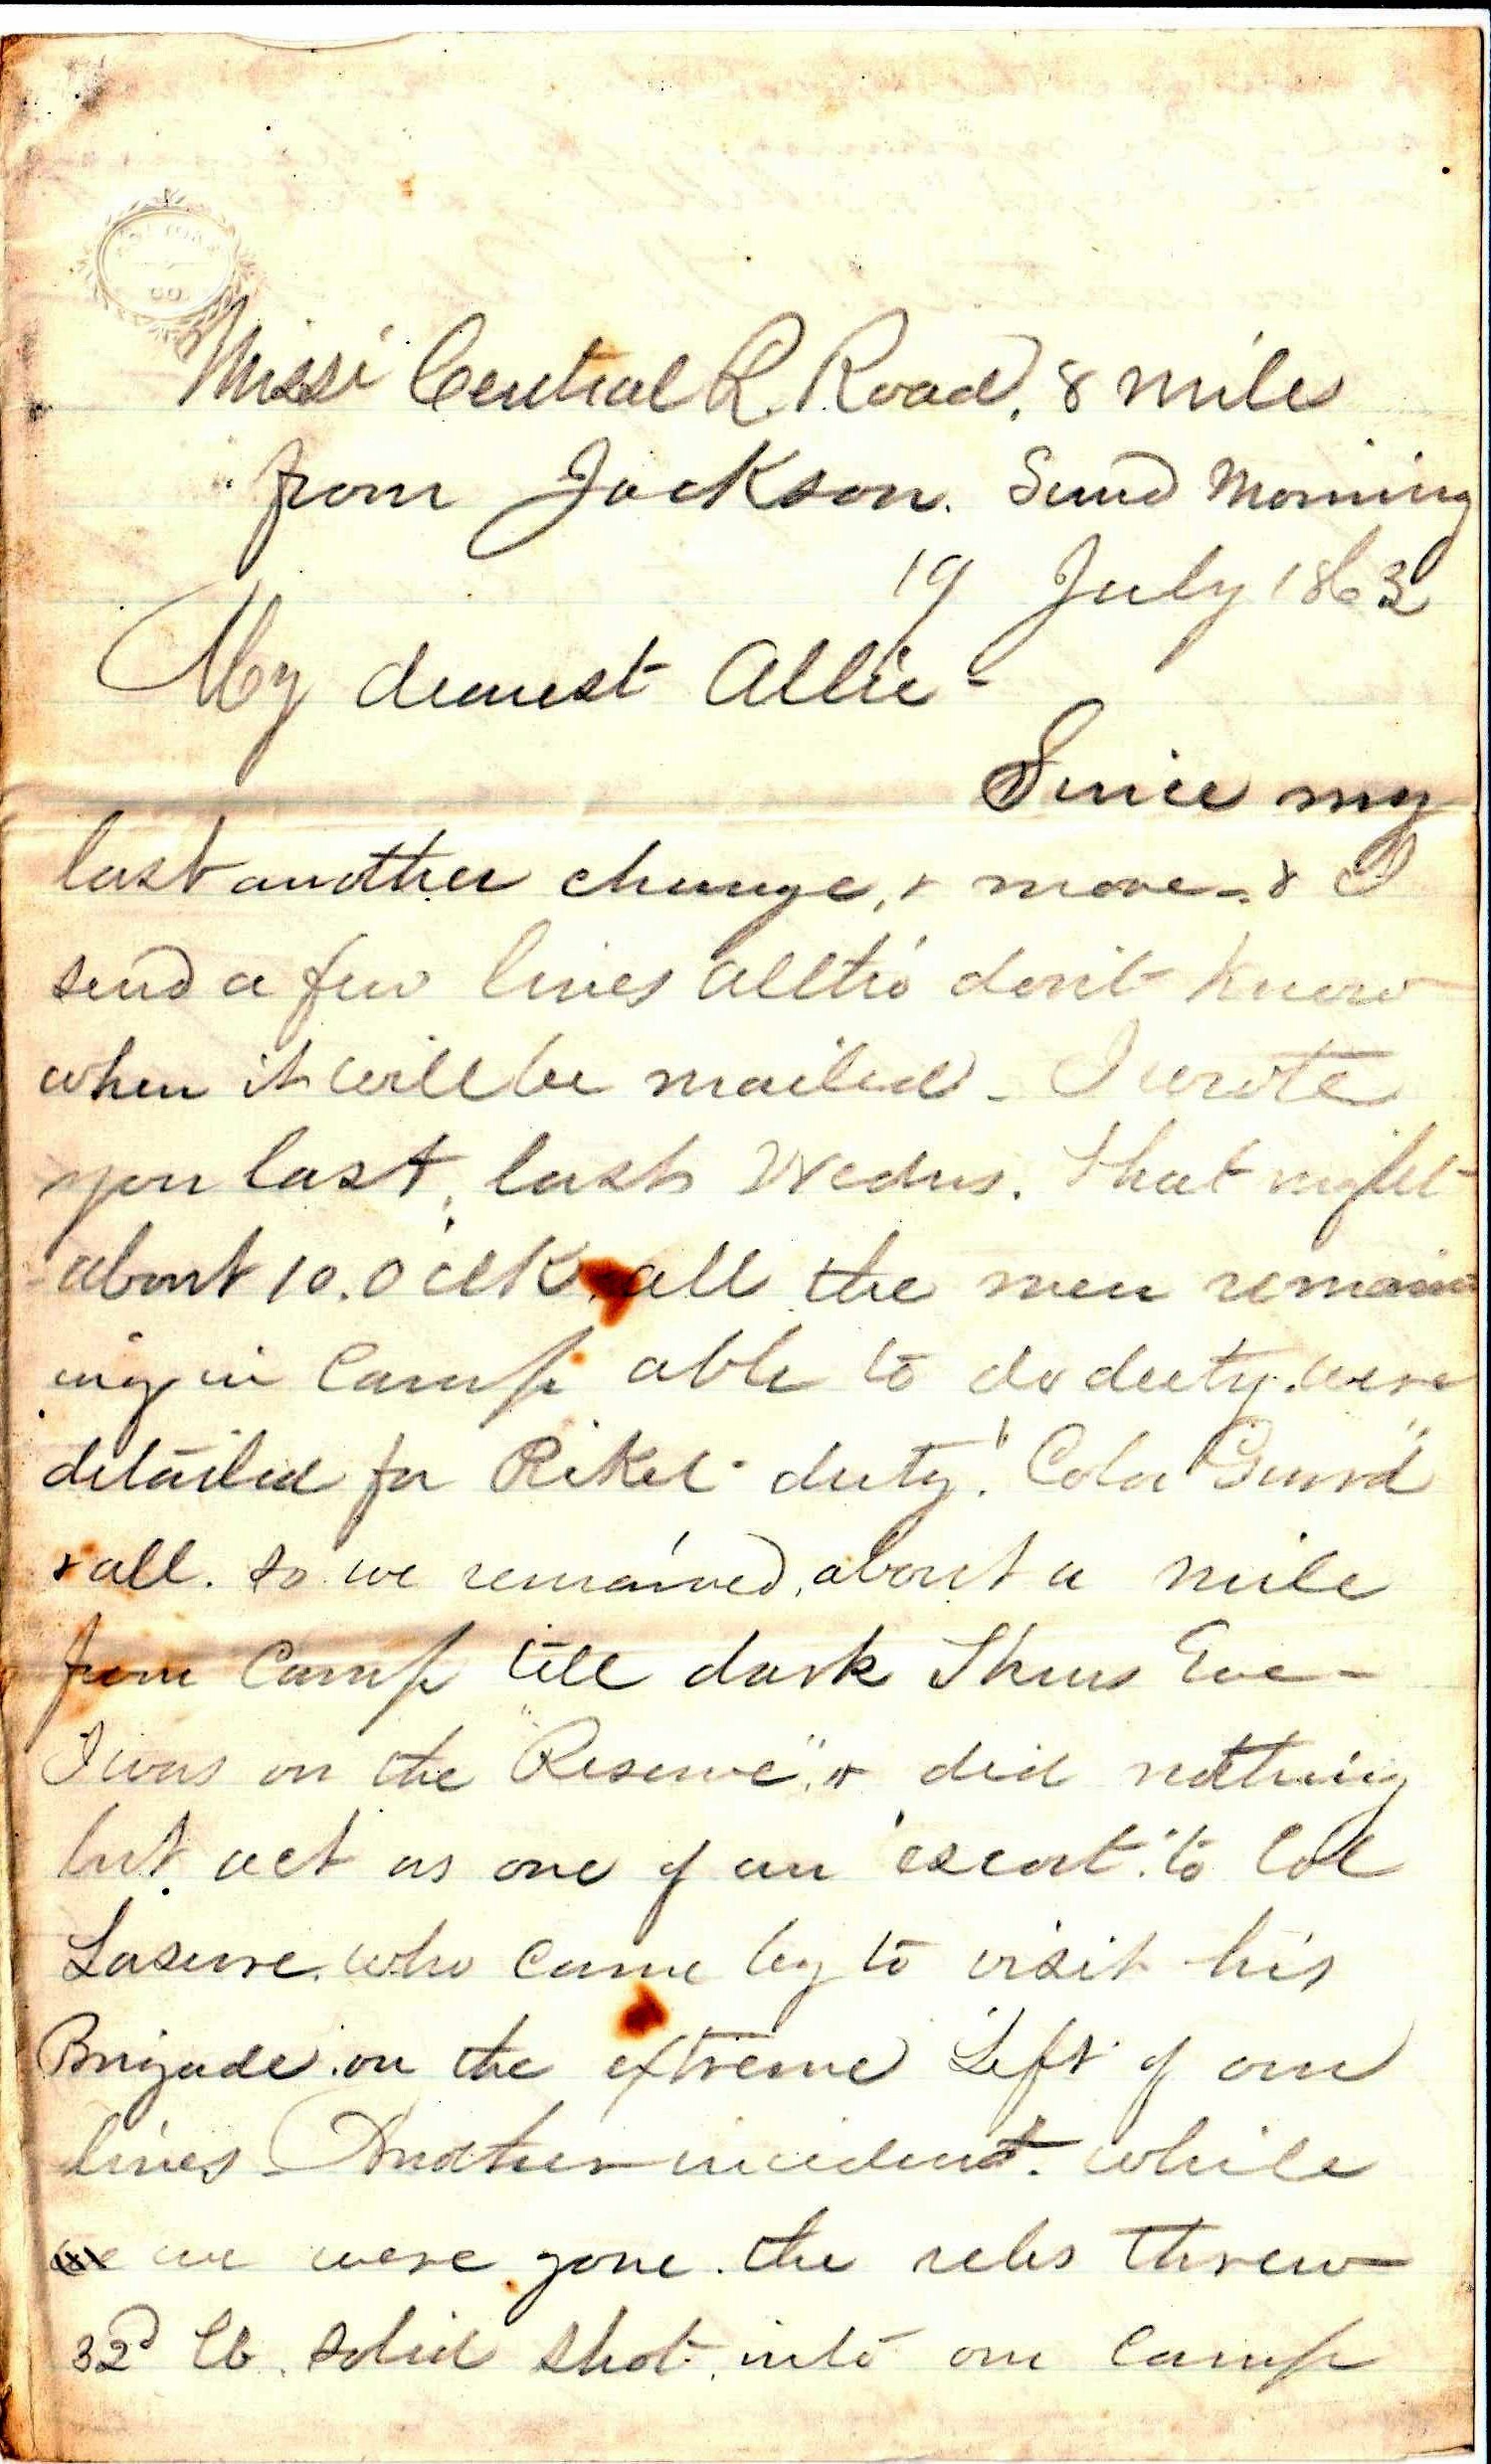 Missi Central R. Road, 8 miles
from Jackson. Sund Morning
19 July 1863
My dearest Allie-
Since my
last another change, & move - & I
send a few lines altho' don't know
when it will be mailed - I wrote
you last, last Wedns. That night
about 10. O'clk. all the men remain
ing in Camp able to do duty. were
detailed for Piket duty. "Color Guard"
& all. so we remained, about a mile
from Camp till dark Thurs Eve -
I was on the "Reserve", & did nothing
but act as one of an "escort" to Col
who came by to visit his
Brigade. on the extreme Left of our
lines - Another incident. while
we were gone. the rebs threw
32d lb. solid shot, into our Camp